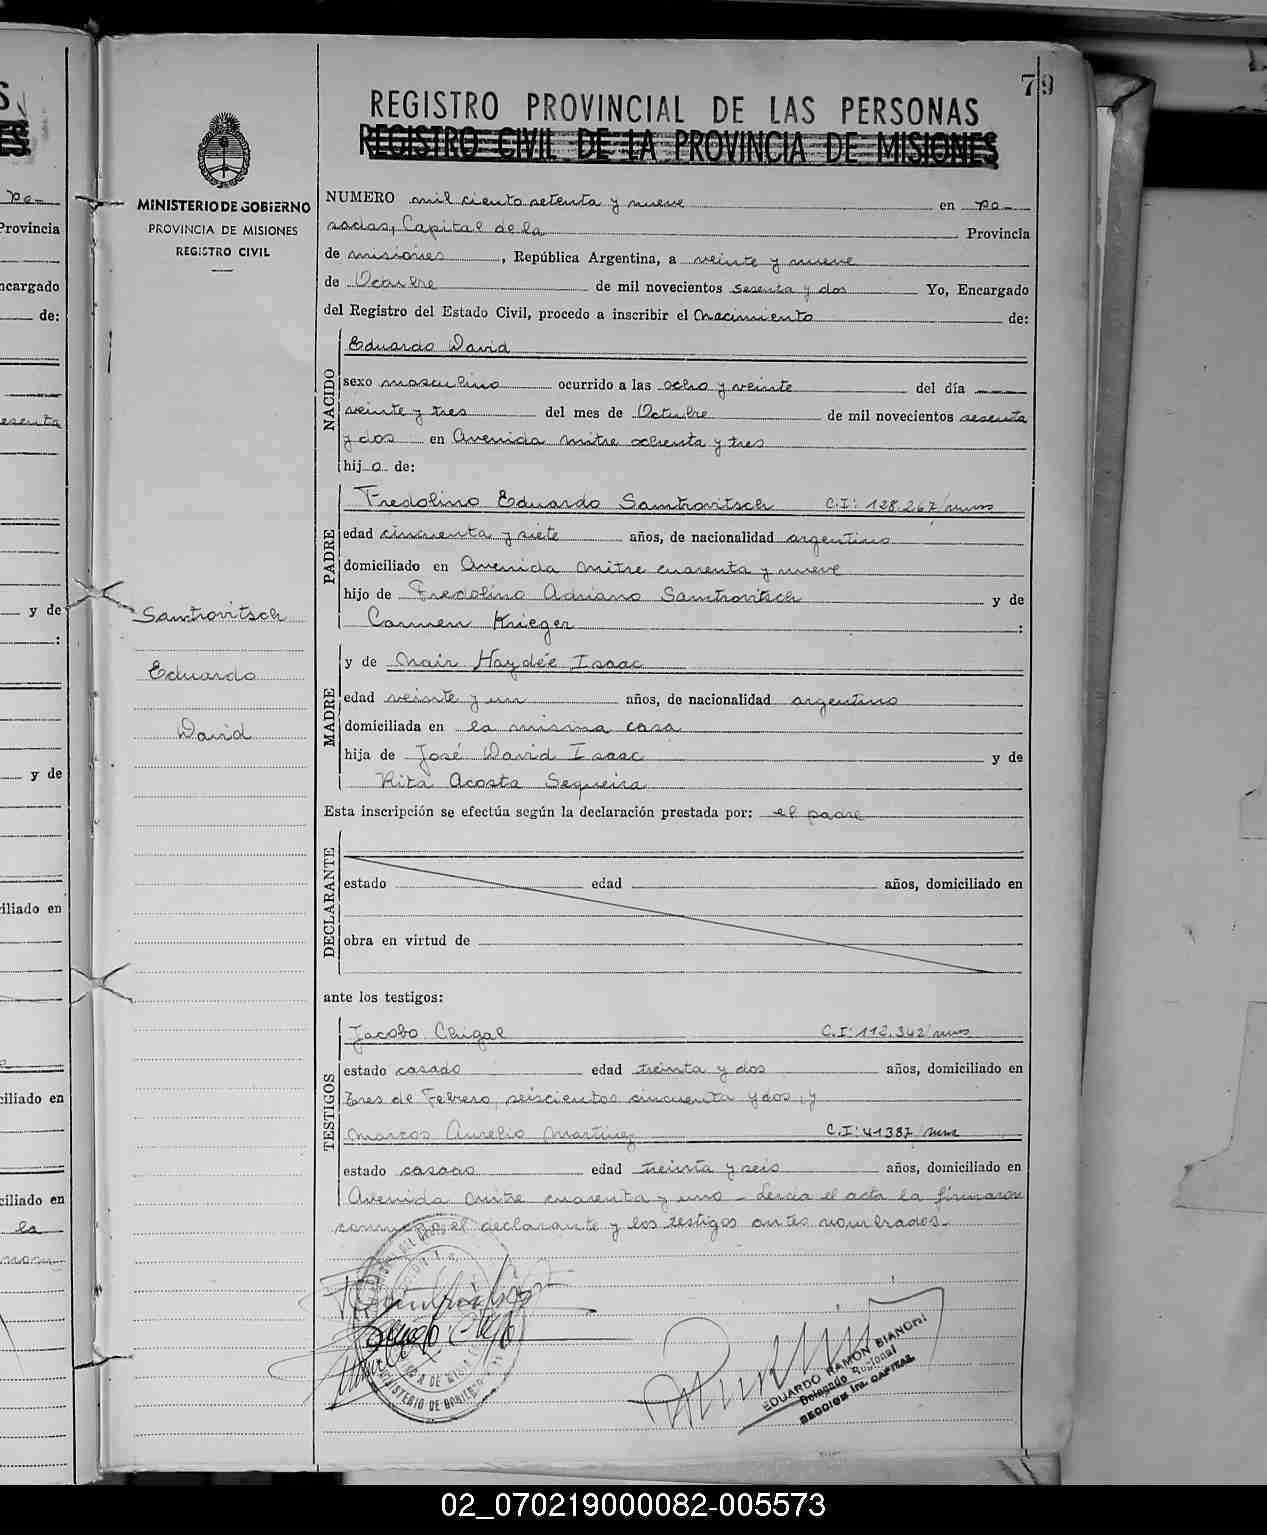 79
REGISTRO PROVINCIAL DE LAS PERSONAS
REGISTRO CIVIL DE LA PROVINCIA DE MISIONES
MINISTERIO DE GOBIERNO
PROVINCIA DE MISIONES
REGISTRO CIVIL
NUMERO mil ciento setenta y nueve en Po-
sadas, Capital de la Provincia
de misiones, República Argentina, a veinte y nueve
de Octubre de mil novecientos sesenta y dos Yo, Encargado
del Registro del Estado Civil, procedo a inscribir el Nacimiento de:
NACIDO
Eduardo David
sexo masculino ocurrido a las ocho y veinte del día
veinte y tres del mes de Octubre de mil novecientos sesenta
y dos en Avenida mitre ochenta y tres
hij o de:
PADRE
Fredolino Eduardo Samtrovitsch C.I: 128.267/mnes
edad cincuenta y siete años, de nacionalidad argentino
domiciliado en Avenida mitre cuarenta y nueve
hijo de Fredolino Adriano Samtrovitsch y de
Carmen Krieger :
Samtrovitsch
Eduardo
David
MADRE
y de Nair Haydée Isaac
edad veinte y un años, de nacionalidad argentino
domiciliada en la misma casa
hija de José David Isaac y de
Rita Acosta Sequeira
Esta inscripción se efectúa según la declaración prestada por: el padre
DECLARANTE
estado edad años, domiciliado en
obra en virtud de
ante los testigos:
TESTIGOS
Jacobo Chigal C.I: 112.342/mnes
estado casado edad treinta y dos años, domiciliado en
Tres de Febrero, seiscientos cincuenta y dos, y
Marcos Aurelio Martinez C.I: 41387/mnes
estado casado edad treinta y seis años, domiciliado en
Avenida mitre cuarenta y uno - Leida el acta la firmaron
conmigo, el declarante y los testigos antes nombrados.
EDUARDO RAMON BIANCHI
Delegado Regional
SECCION 1ra. CAPITAL
MINISTERIO DE GOBIERNO
02_070219000082-005573